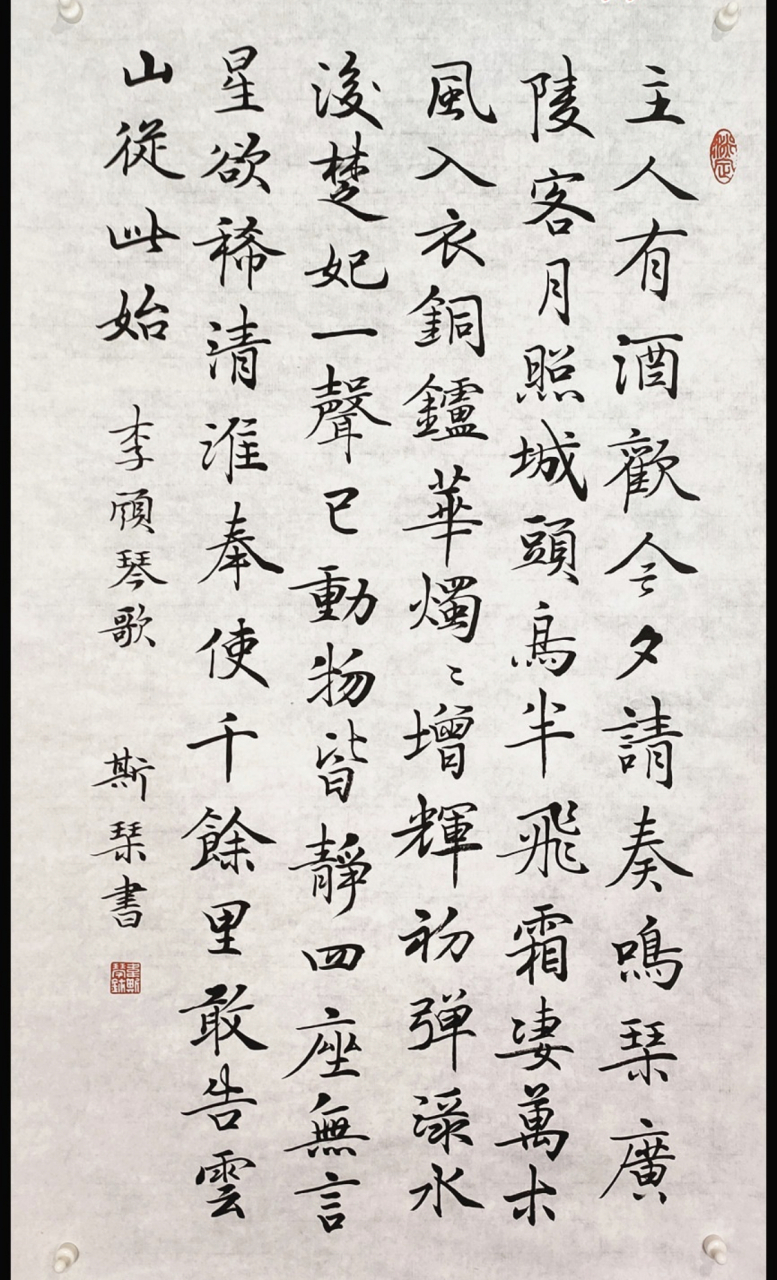 主人有酒歡今夕請奏鳴琹廣
陵客月照城頭烏半飛霜淒萬木
風入衣銅鑪華燭〻增輝初弹渌水
後楚妃一聲已動物皆靜四座無言
星欲稀清淮奉使千餘里敢告雲
山從此始
李頎琴歌
斯琹書